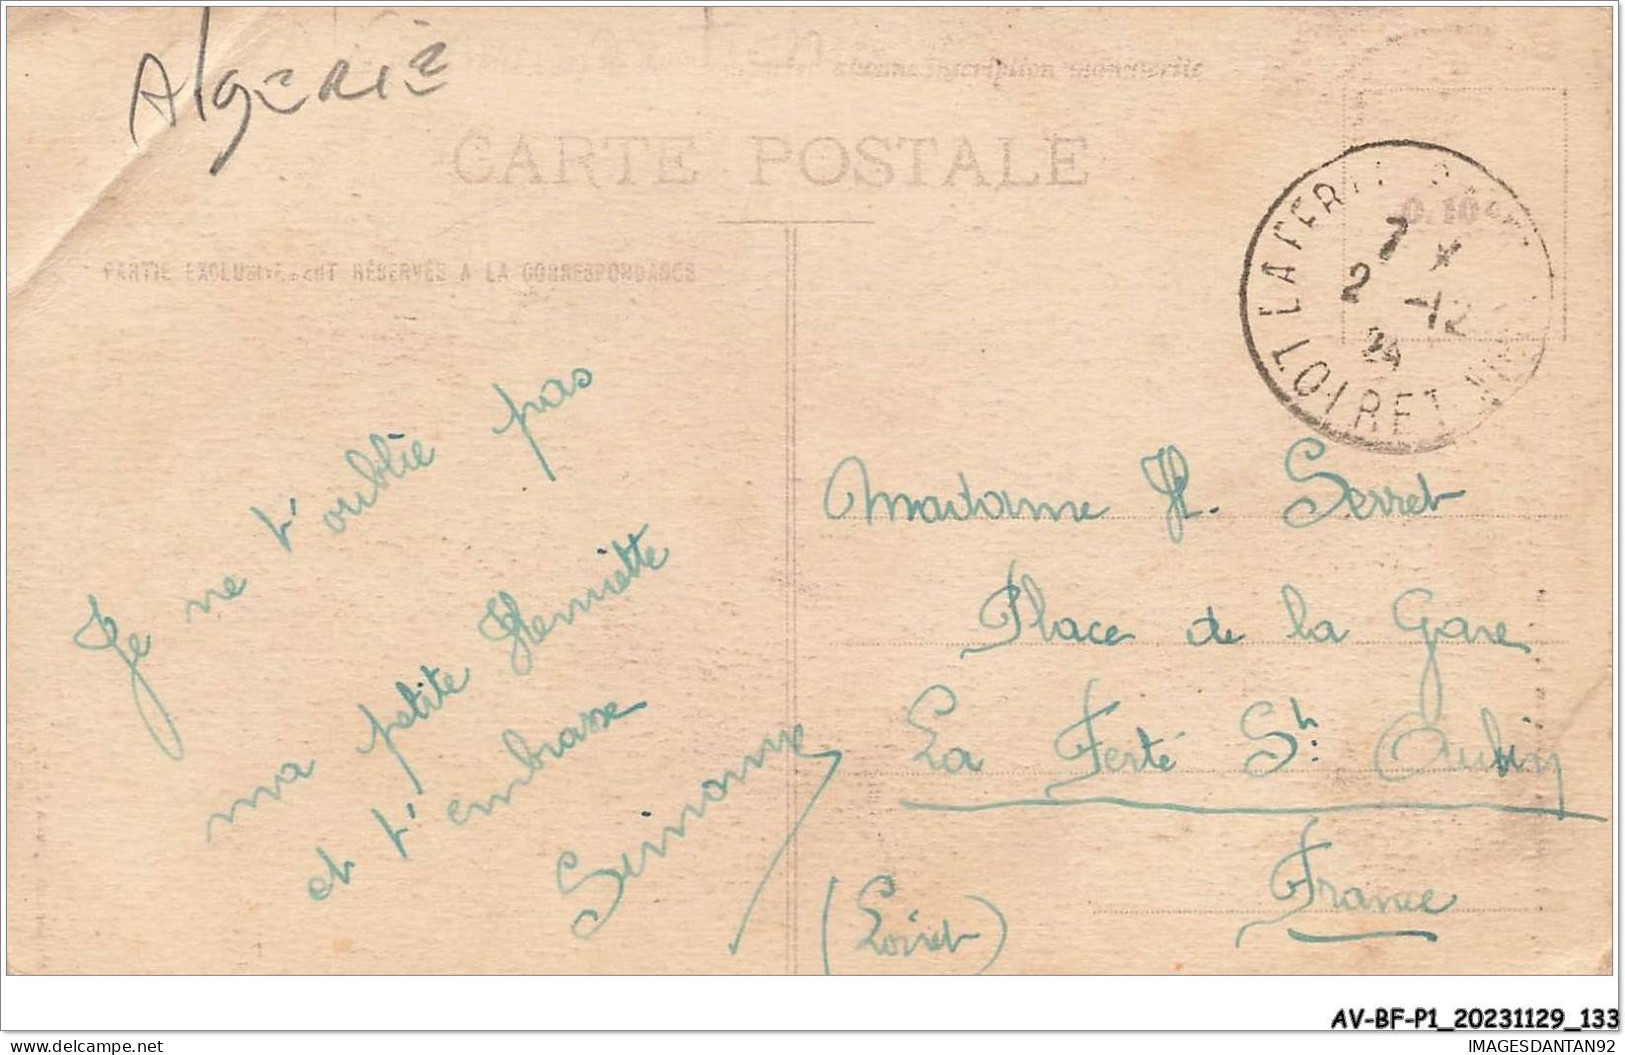 Algérie
CARTE POSTALE
PARTIE EXCLUSIVEMENT RÉSERVÉE A LA CORRESPONDANCE
0.10
LA FERTÉ
7 X
2 -12
24
LOIRET
Je ne t'oublie pas
ma petite Henriette
et t'embrasse
Simonne
Madame H. Serret
Place de la Gare
La Ferté St. Aubin
(Loiret)
France
AV-BF-P1_20231129_133
IMAGESDANTAN92